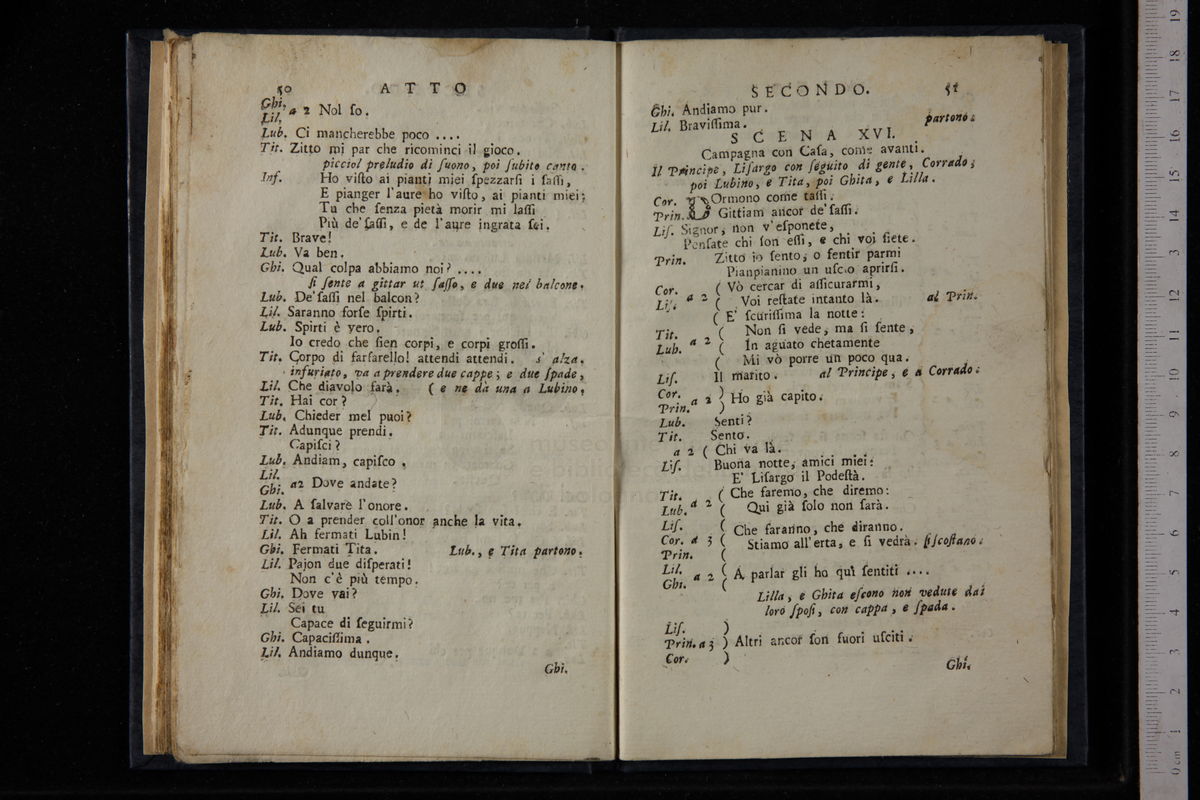 50 ATTO
Ghi.
Lil. a 2 Nol ſo.
Lub. Ci mancherebbe poco ....
Tit. Zitto mi par che ricominci il gioco.
picciol preludio di ſuono, poi ſubito canta.
Inf. Ho viſto ai pianti miei ſpezzarſi i ſaſſi,
E pianger l'aure ho viſto, ai pianti miei;
Tu che ſenza pietà morir mi laſſi
Più de' ſaſſi, e de l'aure ingrata ſei.
Tit. Brave!
Lub. Va ben.
Ghi. Qual colpa abbiamo noi? ....
ſi ſente a gittar ut ſaſſo, e due nel balcone.
Lub. De' ſaſſi nel balcon?
Lil. Saranno forſe ſpirti.
Lub. Spirti è vero.
Io credo che ſien corpi, e corpi groſſi.
Tit. Corpo di farfarello! attendi attendi. s' alza.
infuriato, va a prendere due cappe; e due ſpade,
Lil. Che diavolo farà. ( e ne dà una a Lubino.
Tit. Hai cor?
Lub. Chieder mel puoi?
Tit. Adunque prendi.
Capiſci?
Lub. Andiam, capiſco.
Lil.
Ghi. a2 Dove andate?
Lub. A ſalvare l'onore.
Tit. O a prender coll'onor anche la vita.
Lil. Ah fermati Lubin!
Ghi. Fermati Tita. Lub., e Tita partono.
Lil. Pajon due diſperati!
Non c'è più tempo.
Ghi. Dove vai?
Lil. Sei tu
Capace di ſeguirmi?
Ghi. Capaciſſima.
Lil. Andiamo dunque.
Ghi.
SECONDO. 51
Ghi. Andiamo pur.
Lil. Braviſſima. partono.
SCENA XVI.
Campagna con Caſa, come avanti.
Il Principe, Liſargo con ſeguito di gente, Corrado;
poi Lubino, e Tita, poi Ghita, e Lilla.
Cor. DOrmono come taſſi.
Prin. Gittiam ancor de' ſaſſi.
Liſ. Signor, non v'eſponete,
Penſate chi ſon eſſi, e chi voi ſiete.
Prin. Zitto io ſento, o ſentir parmi
Pianpianino un uſcio aprirſi.
Cor. ( Vò cercar di aſſicurarmi,
Liſ. a 2 ( Voi reſtate intanto là. al Prin.
( E' ſcuriſſima la notte:
Tit. ( Non ſi vede, ma ſi ſente,
Lub. a 2 ( In aguato chetamente
( Mi vò porre un poco qua.
Liſ. Il marito. al Principe, e a Corrado.
Cor. )
Prin. a 2 ) Ho già capito.
Lub. Senti?
Tit. Sento.
a 2 ( Chi va là.
Liſ. Buona notte, amici miei:
E' Liſargo il Podeſtà.
Tit. ( Che faremo, che diremo:
Lub. a 2 ( Qui già ſolo non ſarà.
Liſ. ( Che faranno, che diranno.
Cor. a 3 ( Stiamo all'erta, e ſi vedrà. ſi ſcoſtano.
Prin. (
Lil. (
Ghi. a 2 ( A parlar gli ho quì ſentiti ....
Lilla, e Ghita eſcono non vedute dai
loro ſpoſi, con cappa, e ſpada.
Liſ. )
Prin. a 3 ) Altri ancor ſon fuori uſciti.
Cor. )
Ghi.